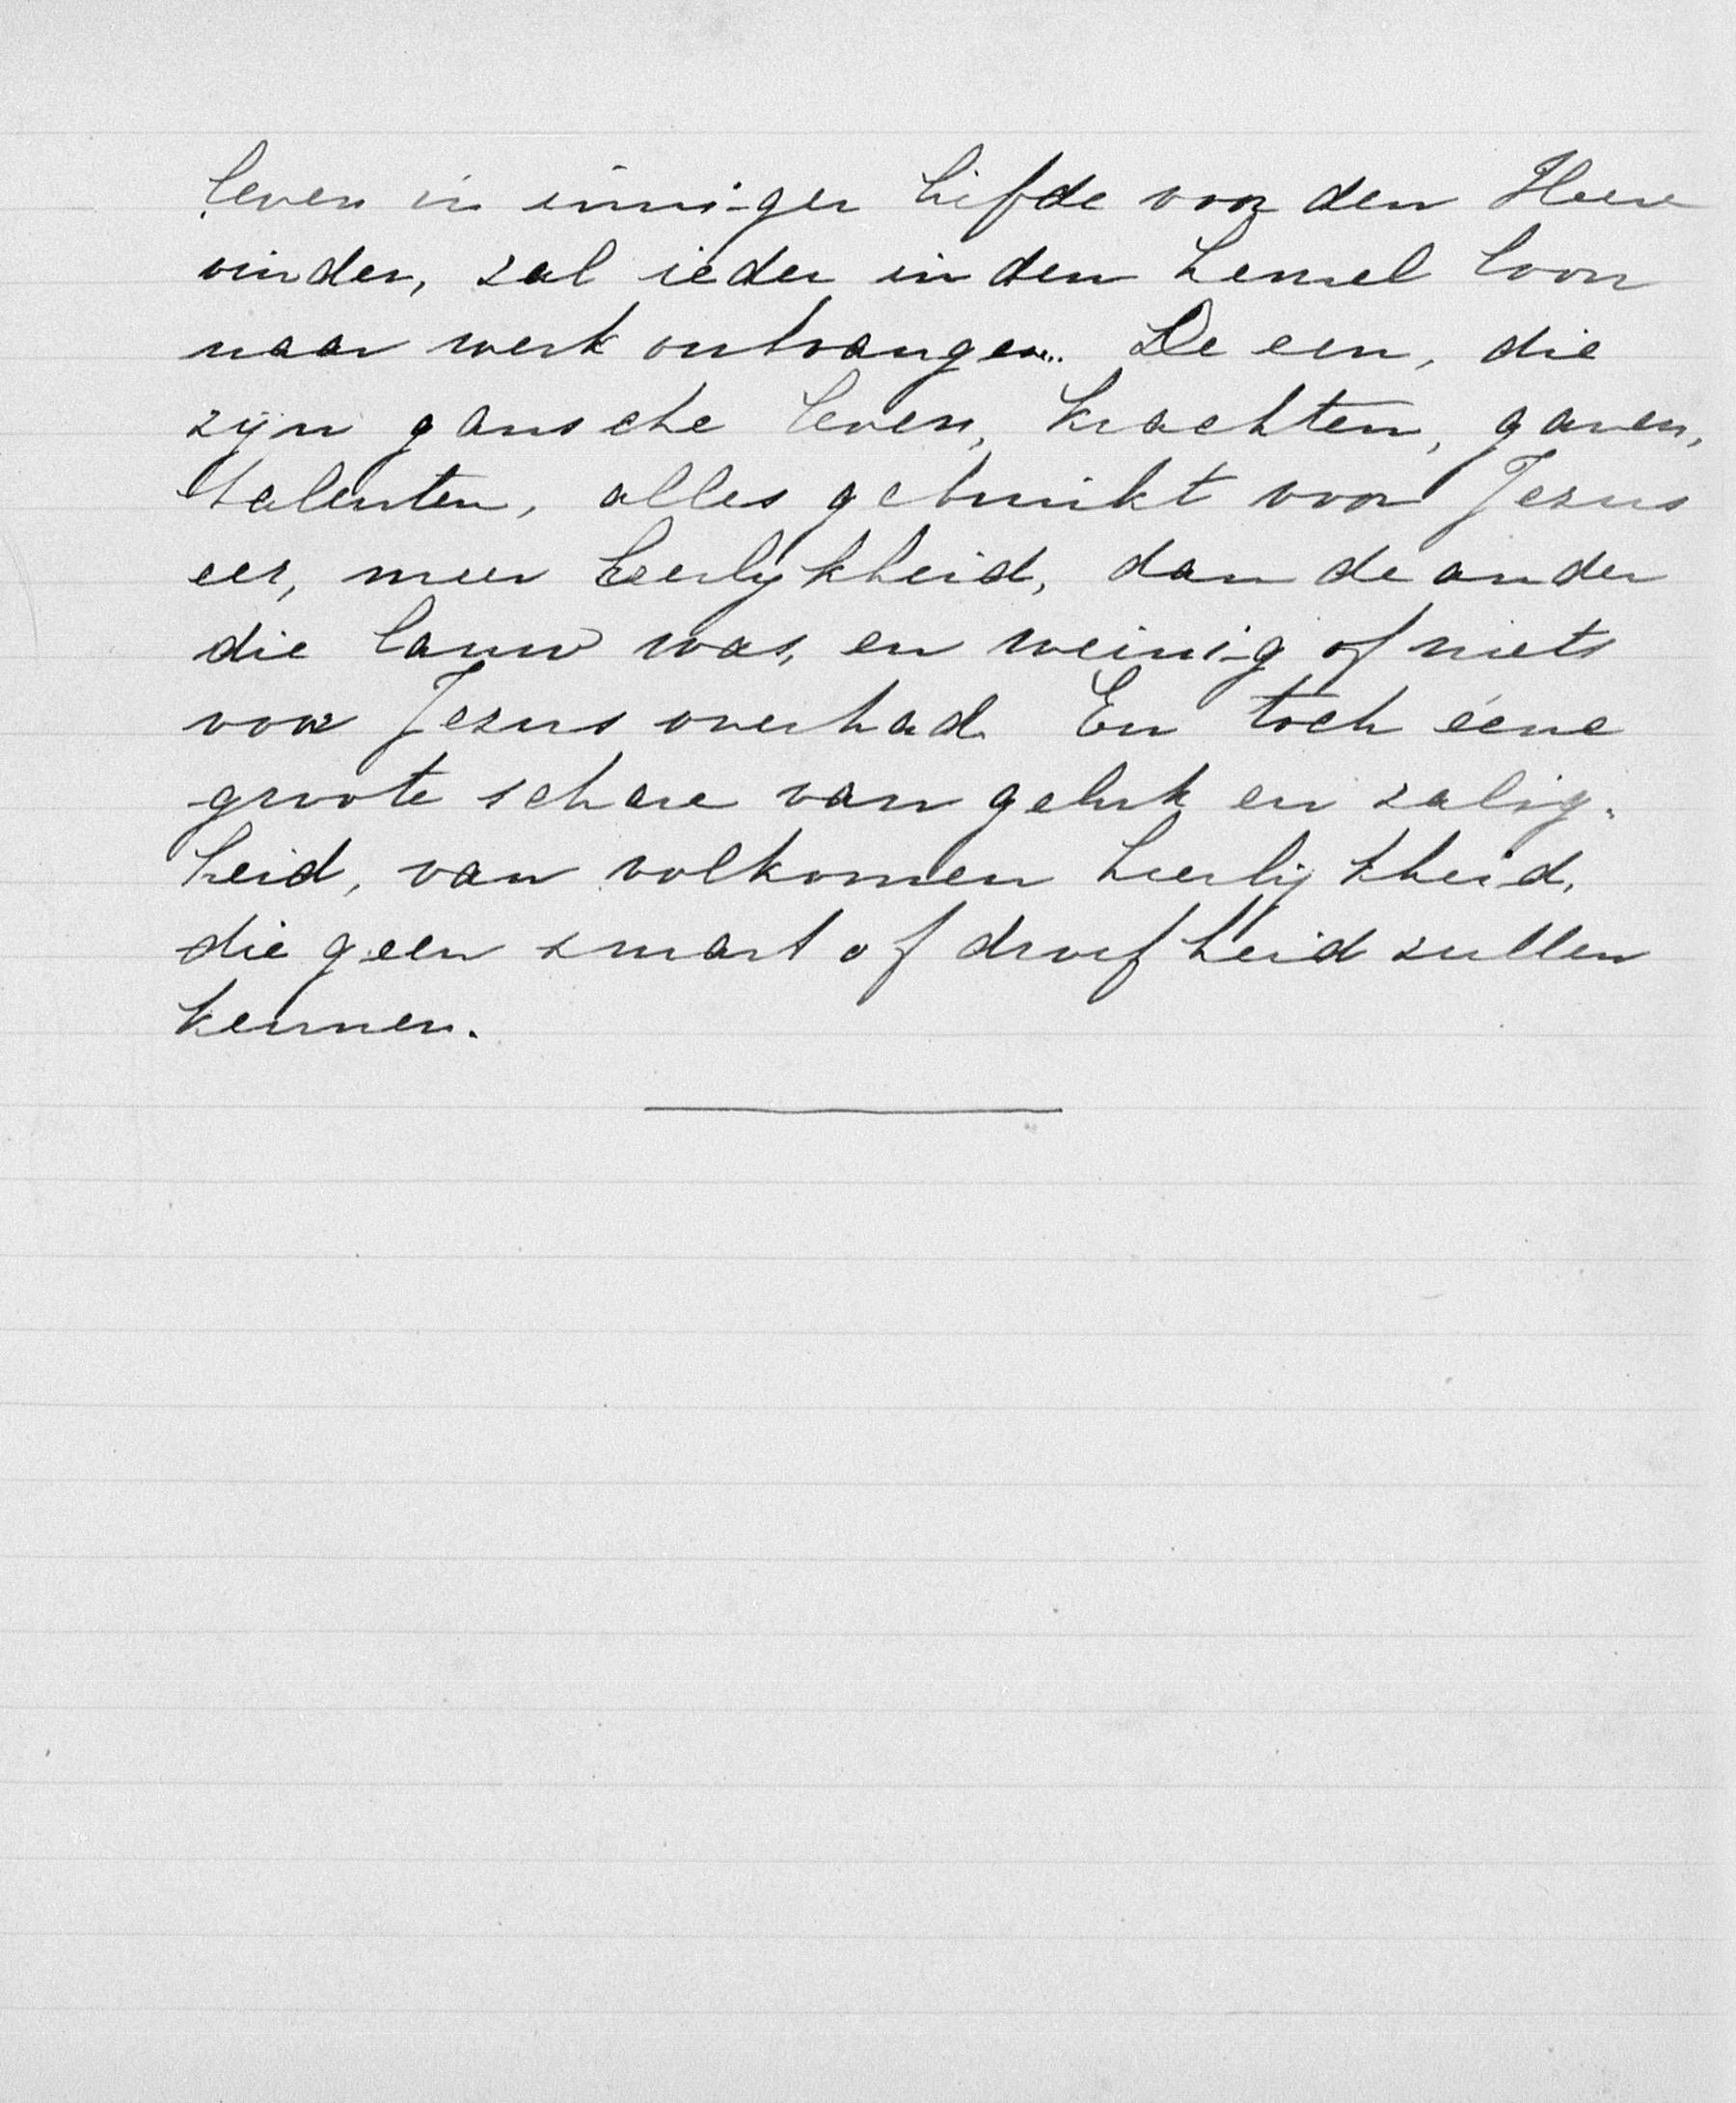 leven in inniger liefde voor den Heere
vinden, zal ieder in den hemel loon
naar werk ontvangen. De een, die
zijn gansche leven, krachten, gaven,
talenten, alles gebruikt voor Jezus
eer, meer heerlijkheid, dan de ander
die lauw was, en weinig of niets
voor Jezus overhad. En toch ééne
groote schare van geluk en zalig-
heid, van volkomen heerlijkheid,
die geen smart of droefheid zullen
kennen.